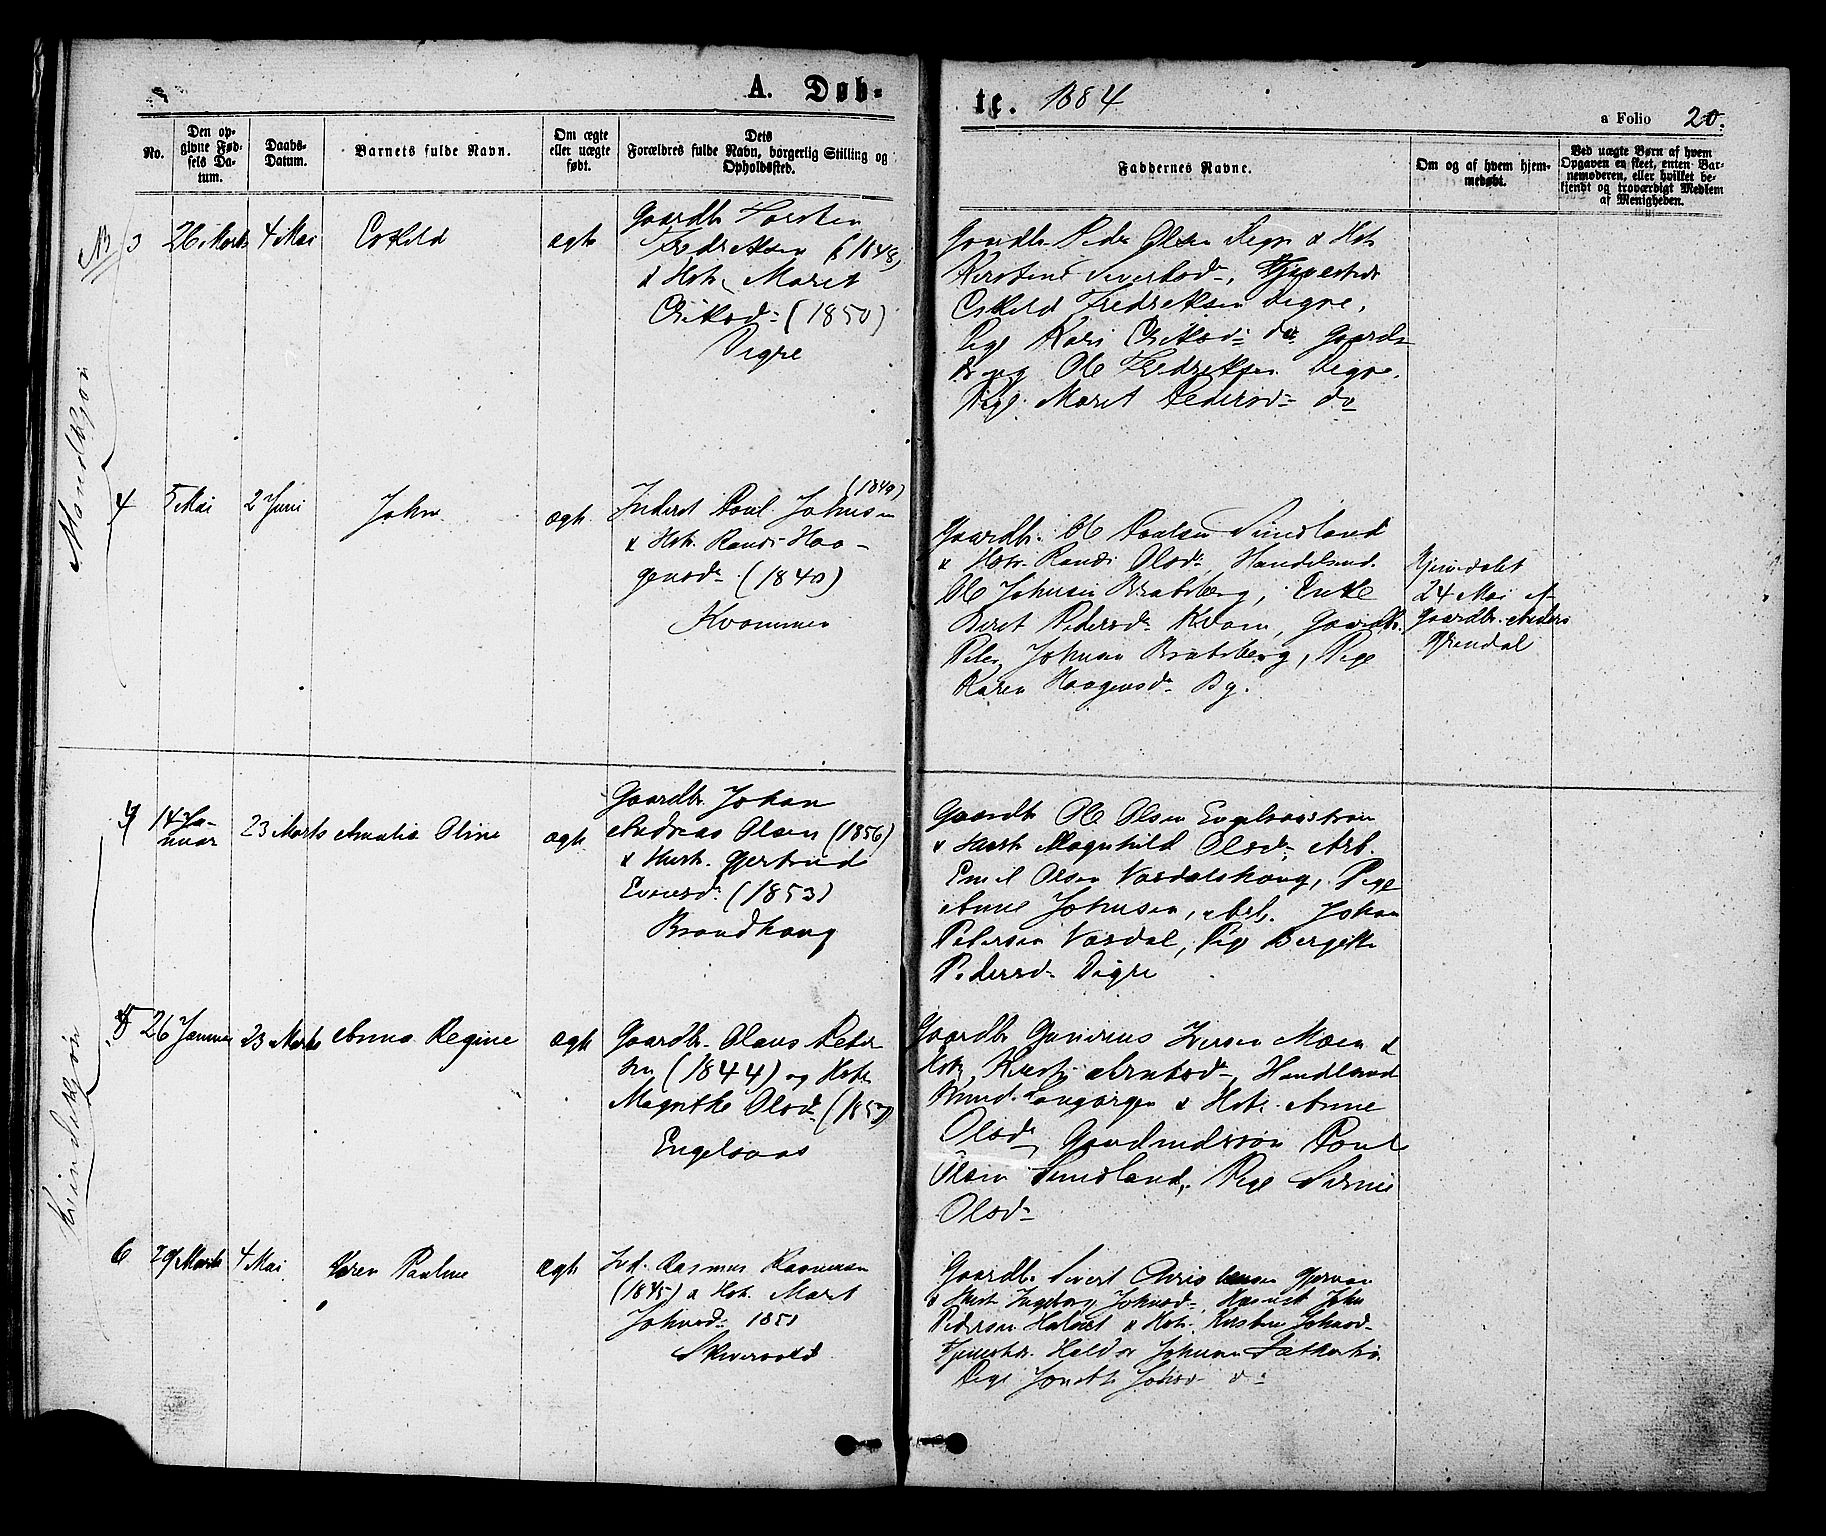 A. Døb-
te. 1884
a Folio 20.
No.
Den op-
givne Fød-
sels Da-
tum.
Daabs-
Datum.
Barnets fulde Navn.
Om ægte
eller uægte
født.
Dets
Forældres fulde Navn, borgerlig Stilling og
Opholdssted.
Faddernes Navne.
Om og af hvem hjem-
medøbt.
Ved uægte Børn af hvem
Opgaven en skeet, enten Bar-
nemoderen, eller hvilket be-
kjendt og troværdigt Medlem
af Menigheden.
Mandkjøn
3 26 Marts 4 Mai Eskild ægte
Gaardbr. Torsten
Fredriksen (1848)
& Hstr. Marit
Eriksd. (1850)
Digre
Gaardbr. Peder Olsen Digre & Hstr.
Kirstine Sivertsd.,
Eskild Fredriksen Digre,
Pige Kari Eriksd. do Gaard
Ole Fredriksen Digre,
Pige Marit Pedersd. do
4 5 Mai 2 Juni John ægte
(1840)
Inderst Poul Johnsen
& Hstr. Randi Haa-
gensd. (1840)
Kvammen
Gaardbr. Ole Paulsen Sundland
& Hstr. Randi Olsd., Handelsmd.
Ole Johnsen Bratsberg, Enke
Beret Pedersd. Kvam, Gaardbr.
Peter Johnsen Bratsberg, Pige
Karen Haagensd. By.
Hjemdøbt
24 Mai af
Gaardbr. Anders
Kvindekjøn
4 14 Ja-
nuar 23 Marts Amalia Oline ægte
Gaardbr. Johan
Andreas Olsen (1856)
& Hustr. Gjertrud
Evensd. (1853)
Brandhaug
Gaardbr. Ole Olsen Engelsaastrøen
& Hustr. Magnhild Olsd., Arb.
Emil Olsen Vardalshaug, Pige
Anne Johnsen, Arb. Johan
Petersen Vardal, Pige Bergitte
Pedersd. Digre
5 26 Januar 23 Marts Anna Regine ægte
Gaardbr. Olaus Peter
sen (1844) og Hstr.
Magritte Olsd.
Engelsaas
Gaardbr. Gunerius Iversen Moen &
Hstr. Kirsti Arntsd.,
Langørgen & Hstr. Anne
Olsd., Gaardmandssøn Poul
Olsen Sundland, Pige
Olsd.
6 29 Marts 4 Mai Karen Pauline ægte
Ind. Rasmus Rasmussen
(1845) & Hstr. Marit
Johnsd. 1851
Skversvold
Gaardbr. Sivert Christensen Gjervan
& Hustr. Ingeborg Johnsd., Husmd. John
Pedersen & Hstr. Kirsten Johnsd.
Haldor Johnsen
Pige Johnsd. do